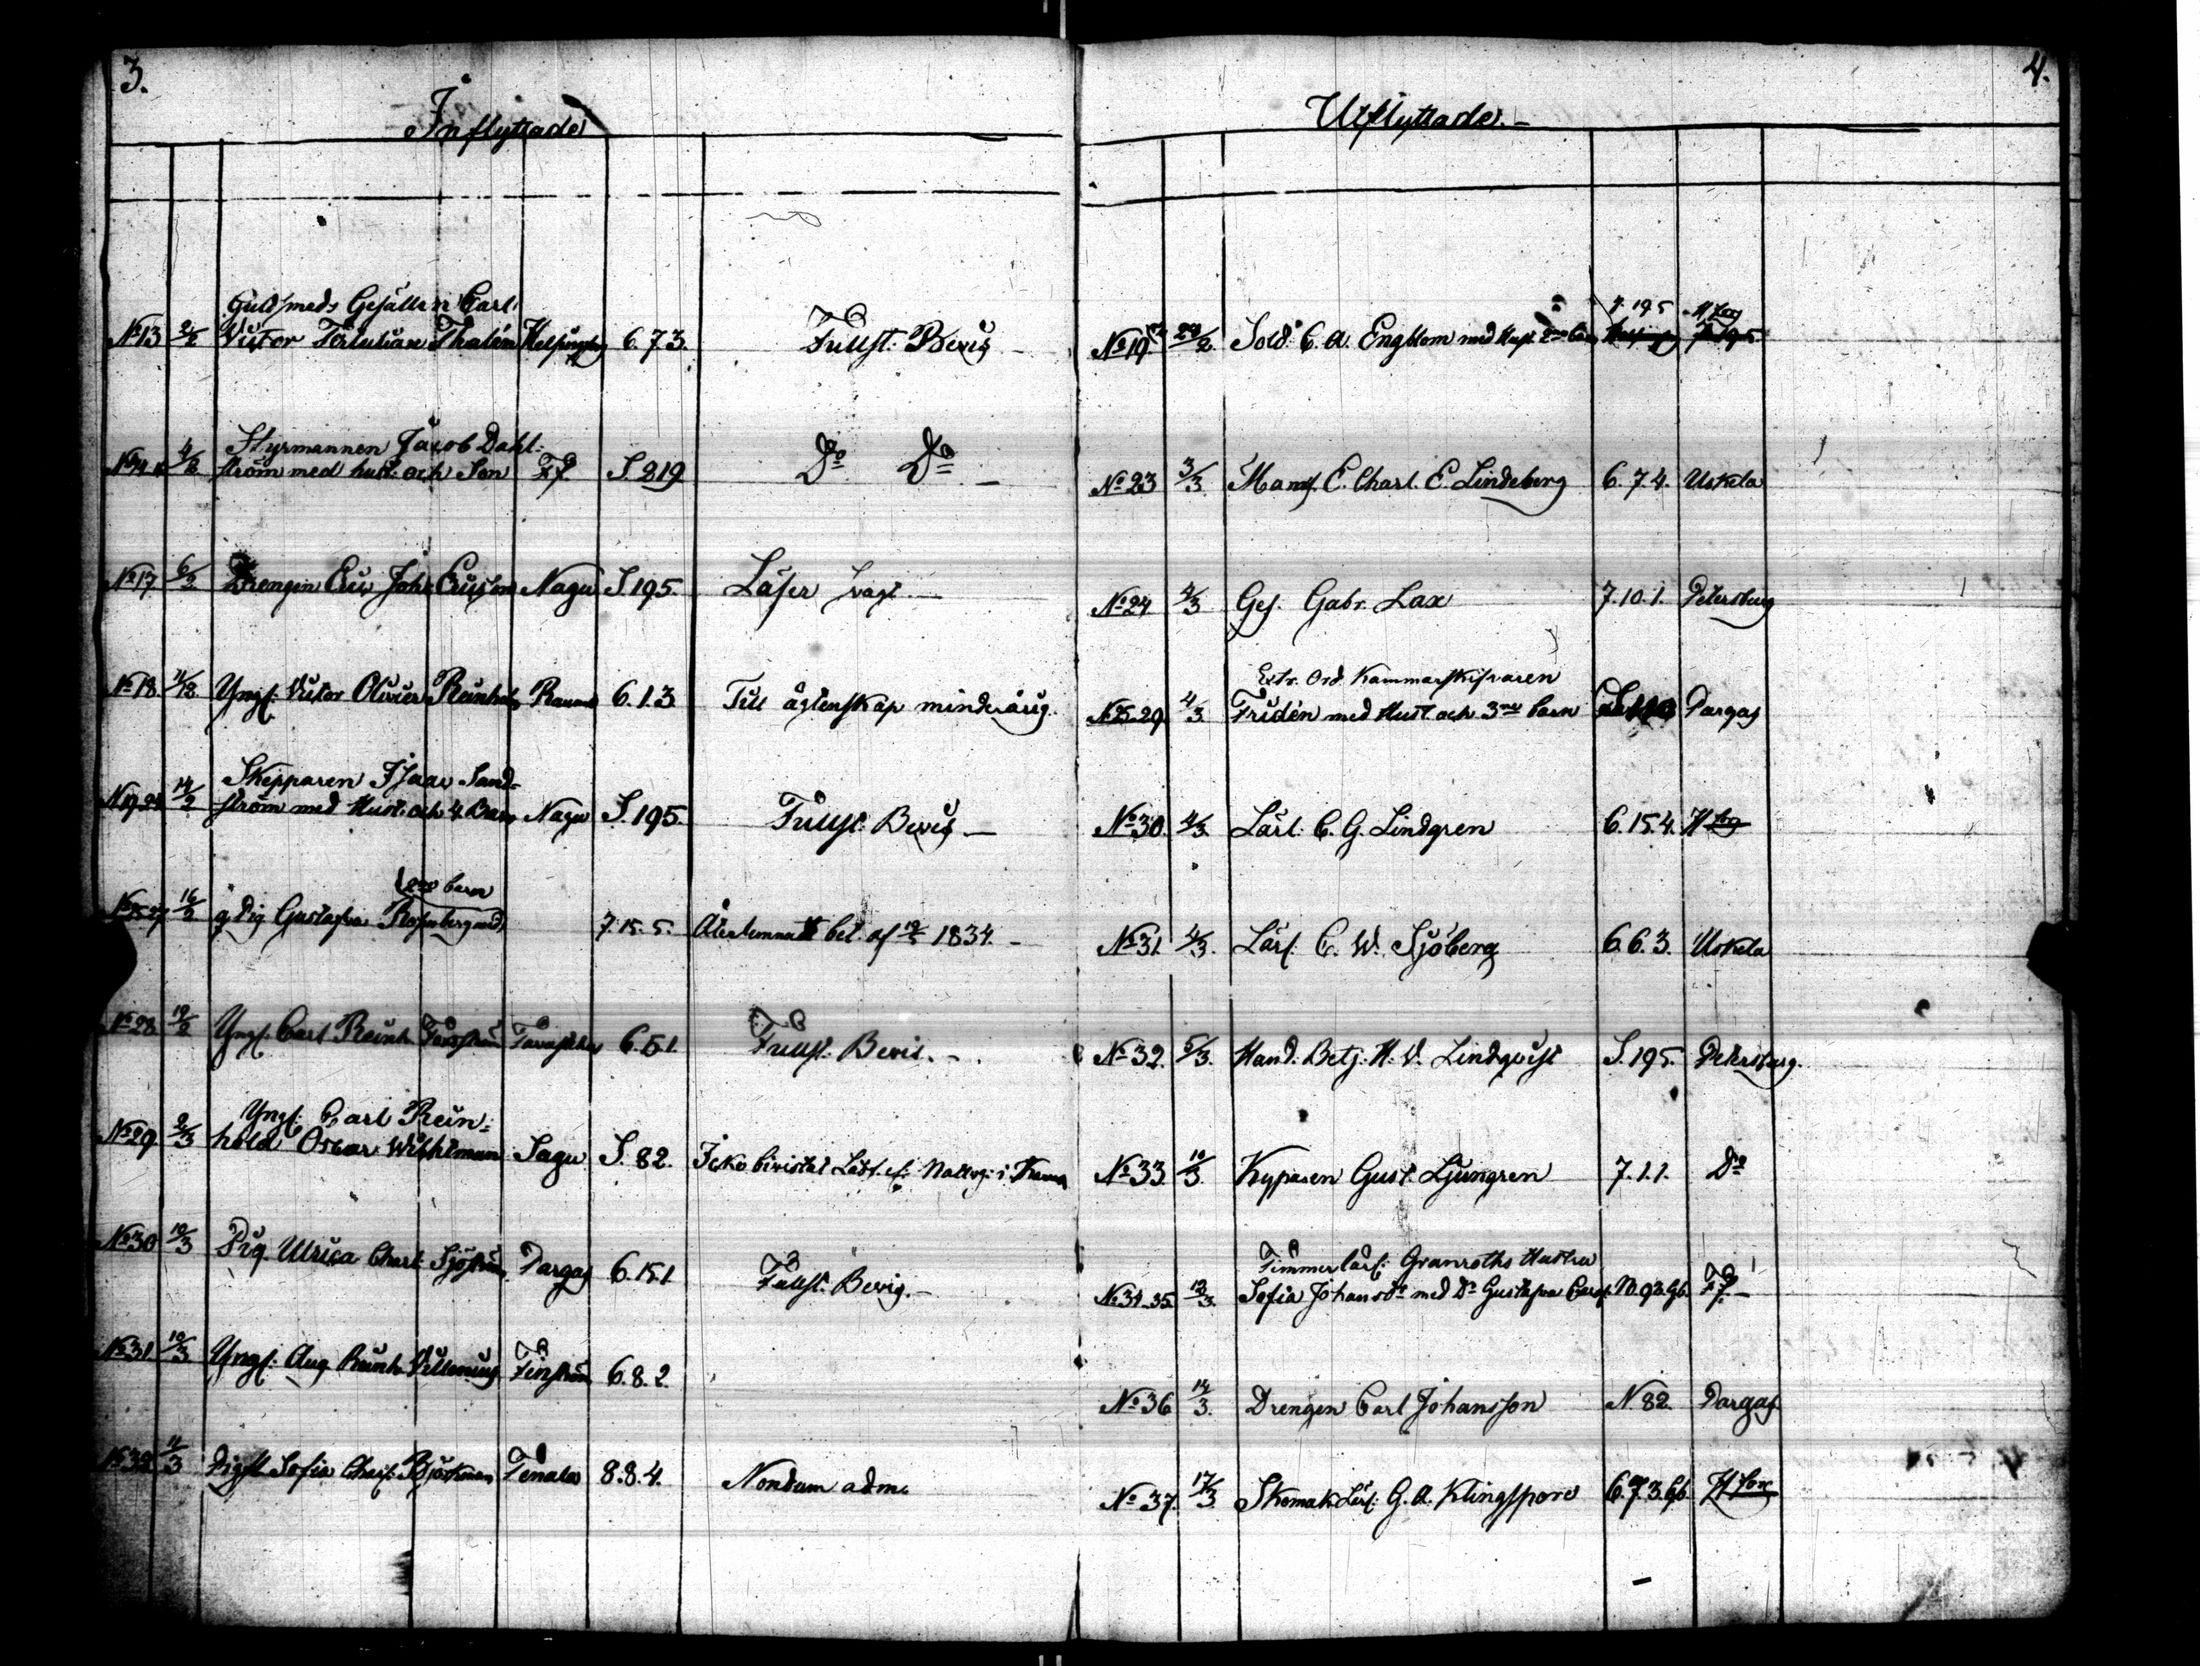 3.
Inflyttade
No 13 2/2 Guldsmeds Gesällen Carl
Victor Thalén Helsingfors 6.7.3. Fullst. Bevis
No 14 4/2 Styrmannen Jacob Dahl-
ström med hust. och Son S. 219 Do Do
No 17 6/2 Drengen Eric Joh. Ericsson Nagu S. 195. Läser svagt
No 18 11/2 Yngl. Victor Olivier Reinhols 6.1.3 Till ägtenskap minderårig.
No 19.24 14/2 Skepparen Isaac Sand-
ström med Hust. och 4. Barn Nagu S. 195. Fullst. Bevis
barn
16/2 Pig Gustafva Rosenberg med 7.15.5. Återlemnadt bet. af 1834.
No 28 19/2 Yngl. Carl Reinh 6.5.1. Fullst. Bevis.
No 29 2/3 Yngl. Carl Rein-
hold Oscar Wilhelman Sagu S. 82. Icke bevistat Läsf.
No 30 10/3 Pig. Ulrica Charl. Sjöström Pargas 6.15.1 Fullst. Bevis.
No 31 10/3 Yngl. Aug. Reinh. Villenius Finström 6.8.2.
No 32 11/3 Sofia Björkman Tenala 8.8.4. Nondum adm.
4.
Utflyttade.
7.195 H.fors
No 19. 27/2. Sold. C. A. Engblom med Hust.
No 23 3/3. Mams. E. Charl. E. Lindeberg 6.7.4. Uskela
No 24 4/3 Ges. Gabr. Lax 7.10.1. Petersburg
Extr. Ord. Kammarskrifvaren
No 25-29. 4/3. Fridén med Hust. och 3ne barn Pargas
No 30. 4/3. Lärl. C. G. Lindgren 6.15.4. H.fors
No 31. 4/3. Lärl. C. W. Sjöberg 6.6.3. Uskela
No 32. 5/3. Hand. Betj. H. V. Lindqvist S. 195. Petersburg.
No 33. 10/3. Kyparen Gust. Ljungren 7.1.1. Do
Timmerlärl. Granroths Hustru
No 34-35. 12/3. Sofia Johansdr med Dr Gustafva
No 36 14/3. Drengen Carl Johansson N 82. Pargas
No 37. 17/3. Skomak. Lärl. G. A. Klingspore 6.7.3. H.fors